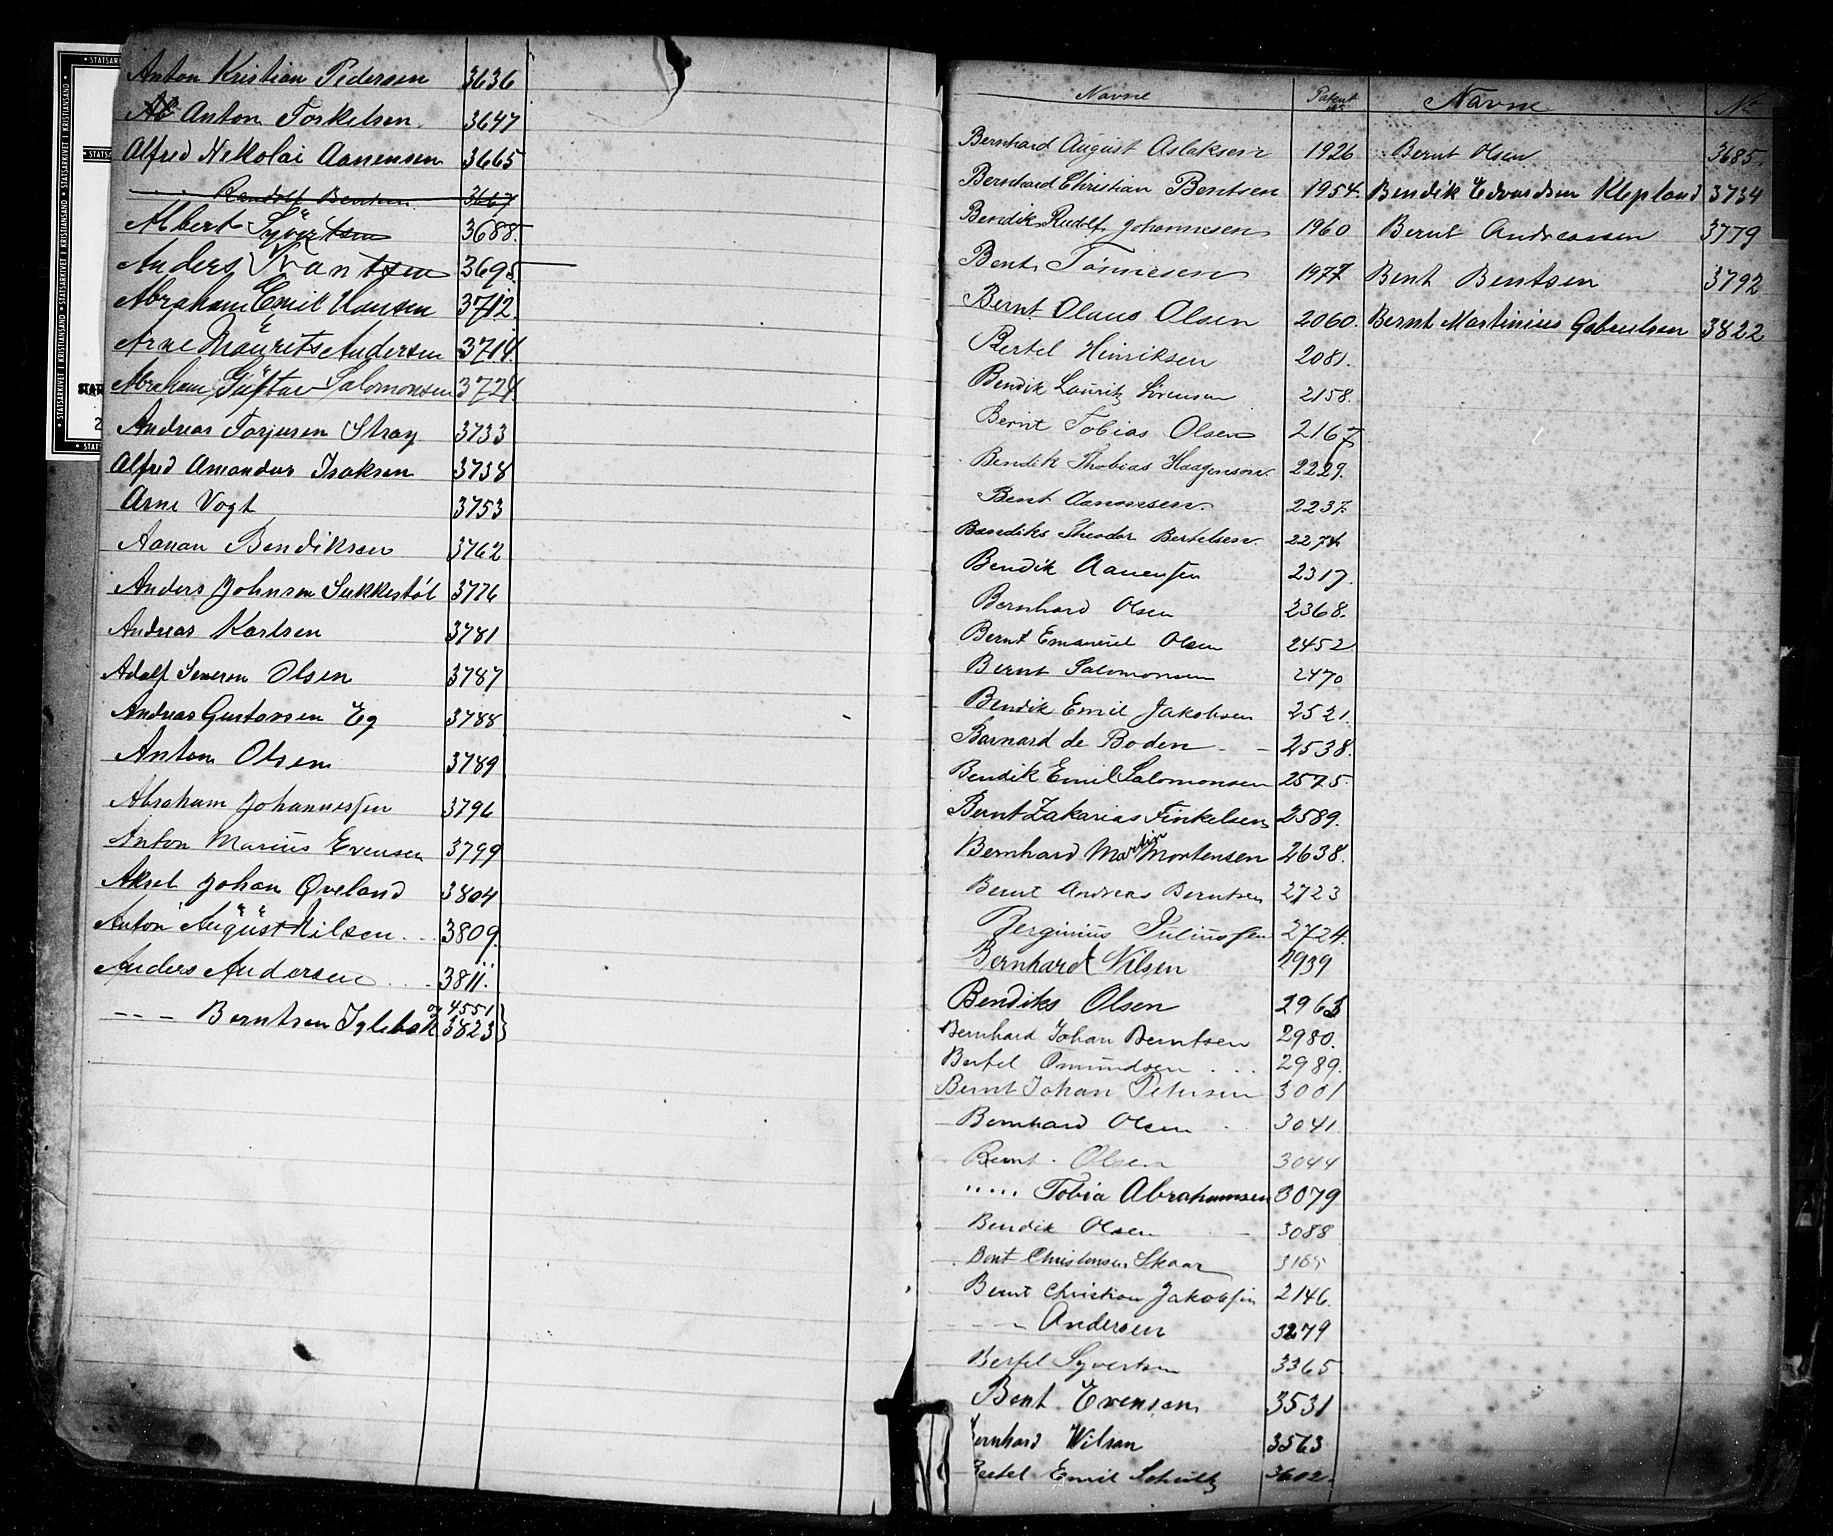 Anton Kristian Pedersen 3636
Anton Torkelsen 3647
Alfred Nikolai Aanensen 3665
Randolf Bentsen 3667
Albert Syvertsen 3688
Anders Knantsen 3695
Abraham Emil Hansen 3712
Arne Maurits Andersen 3714
Abraham Gustav Salomonsen 3724
Andreas Torjusen Stray 3733
Alfred Amandus Isaksen 3738
Arne Vogt 3753
Aanan Bendiksen 3762
Anders Johnsen Sukkestøl 3776
Andreas Karlsen 3781
Adolf Severin Olsen 3787
Andreas Gustavsen Eg 3788
Anton Olsen 3789
Abraham Johannessen 3796
Anton Marius Evensen 3799
Aksel Johan Øveland 3804
Anton August Nilsen 3809
Anders Andersen 3811
4551
Berntsen Iglebæk 3823
Navne Patent No
Bernhard August Aslaksen 1926
Bernhard Christian Bentsen 1954
Bendik Rudolf Johannesen 1960
Bent Tønnesen 1977
Bernt Olaus Olsen 2060
Bertel Hinriksen 2081
Bendik Lauritz Sørensen 2158
Bernt Tobias Olsen 2167
Bendik Thobias Haagenson 2229
Bent Aanonsen 2237
Bendiks Theodor Bertelsen 2274
Bendik Aanensen 2317
Bernhard Olsen 2368
Bernt Emanuel Olsen 2452
Bernt Salomonsen 2470
Bendik Emil Jakobsen 2521
Barnard de Boden 2538
Bendik Emil Salomonsen 2575
Bernt Zakarias Finkelsen 2589
Bernhard Martin Mortensen 2638
Bernt Andreas Berntsen 2723
Berginius Juliussen 2724
Bernhard Nilsen 2939
Bendiks Olsen 2963
Bernhard Johan Berntsen 2980
Bertel Omundsen 2989
Bernt Johan Petersen 3001
Bernhard Olsen 3041
Bernt Olsen 3044
Tobia Abrahamsen 3079
Bendik Olsen 3088
Bent Christensen Skaar
Bernt Christian Jakobsen 2146
Andersen 3279
Bertel Syvertsen 3365
Bent Evensen 3531
Bernhard Wilson 3563
Bertel Emil Schultz 3602
Navne No
Bernt Olsen 3685
Bendik Edvardsen Klepland 3734
Bernt Andreassen 3779
Bent Bentsen 3792
Bernt Martinius Gabrielsen 3822